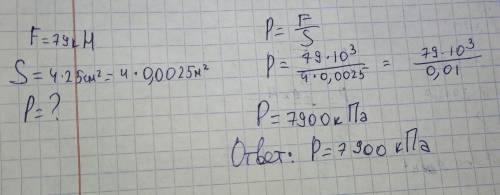 F=79кН
S=4·25см²=4·0,0025м²
P=?
P=F/S
P=79·10³/4·0,0025=79·10³/0,01
P=7900кПа
Ответ: P=7900кПа